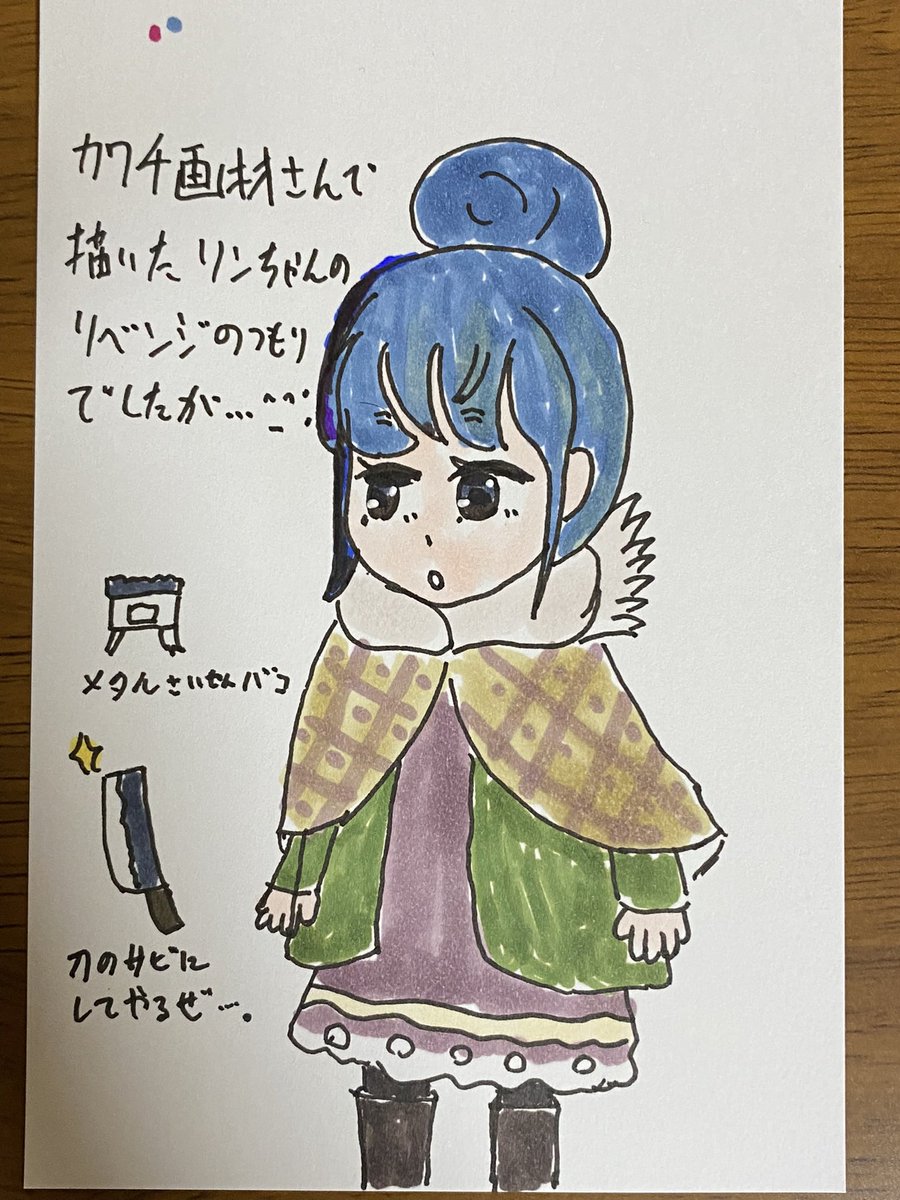 カワチ画材さんで
描いたリンちゃんの
リベンジのつもり
でしたが...^_^;
メタルさいせんバコ
刀のサビに
してやるぜ…。